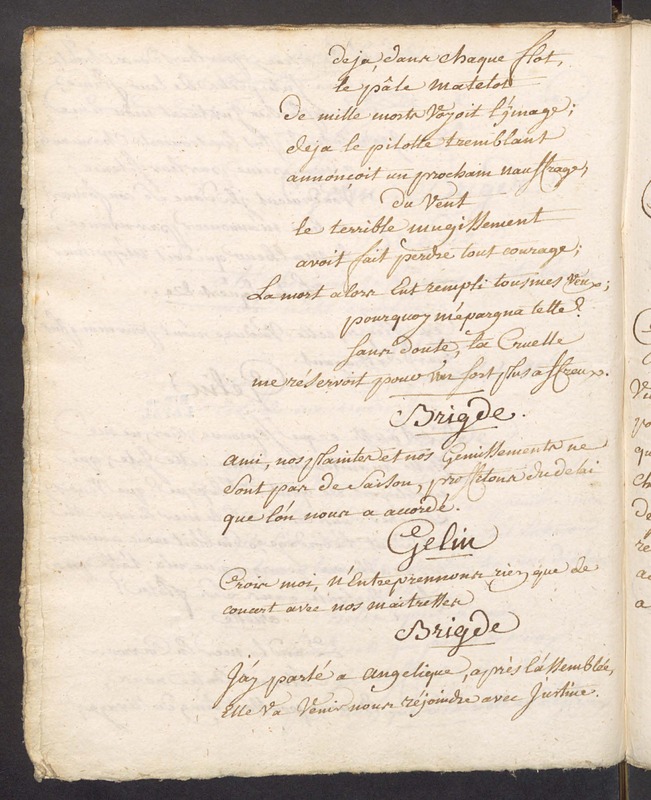 deja, dans chaque flot,
le pâle matelot
de mille morts voyoit l'ymage;
deja le pilotte tremblant
annonçoit un prochain nauffrage,
du vent
le terrible mugissement
avoit fait perdre tout courage;
La mort alors eut rempli tous mes veux;
pourquoy m'epargna telle?
sans doute, la Cruelle
me réservoit pour un sort plus affreux.
Brigde.
ami, nos plaintes et nos Gemissements ne
sont pas de saison, proffitons du delai
que l'on nous a accordé.
Gelin
Crois moi, n'Entreprennons rien que de
concert avec nos maitresses
Brigde
J'ay parlé a angelique, après l'assemblée,
Elle va venir nous réjoindre avec Justine.